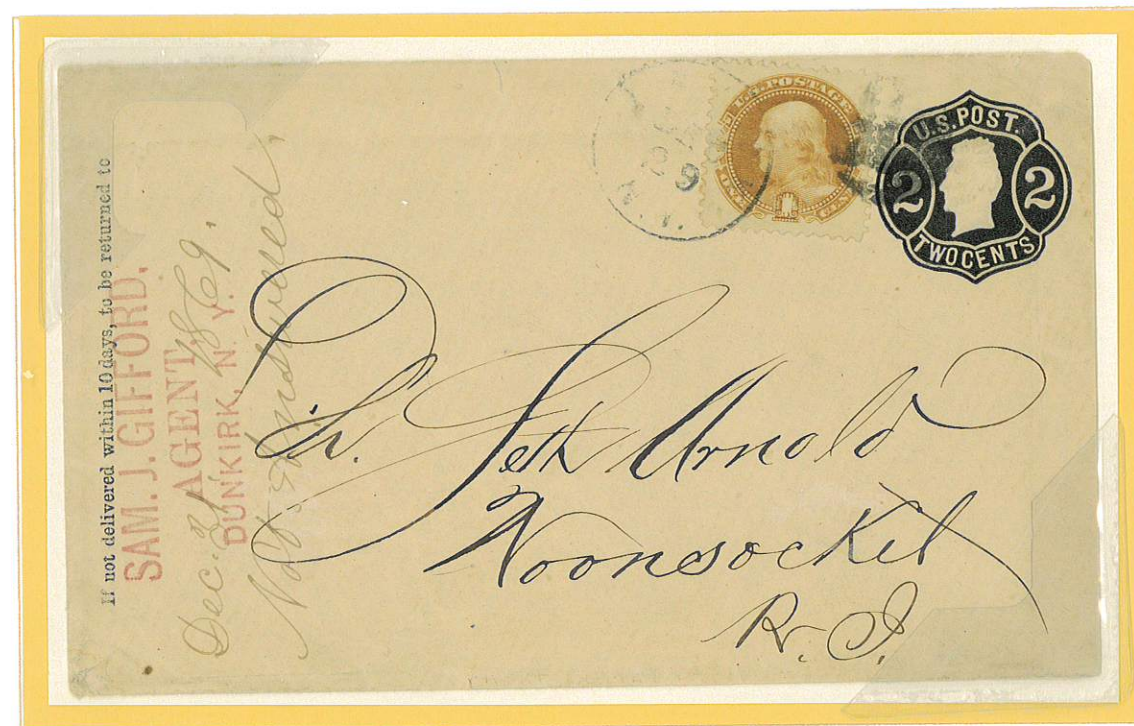 If not delivered within 10 days, to be returned to
SAM. J. GIFFORD,
AGENT,
DUNKIRK, N. Y.
Dec. 31 1869.
Not answered.
29
N.Y.
U.S. POSTAGE
ONE 1 CENT
U.S. POST.
2 2
TWO CENTS
Dr. Seth Arnold
Woonsocket
R. I.